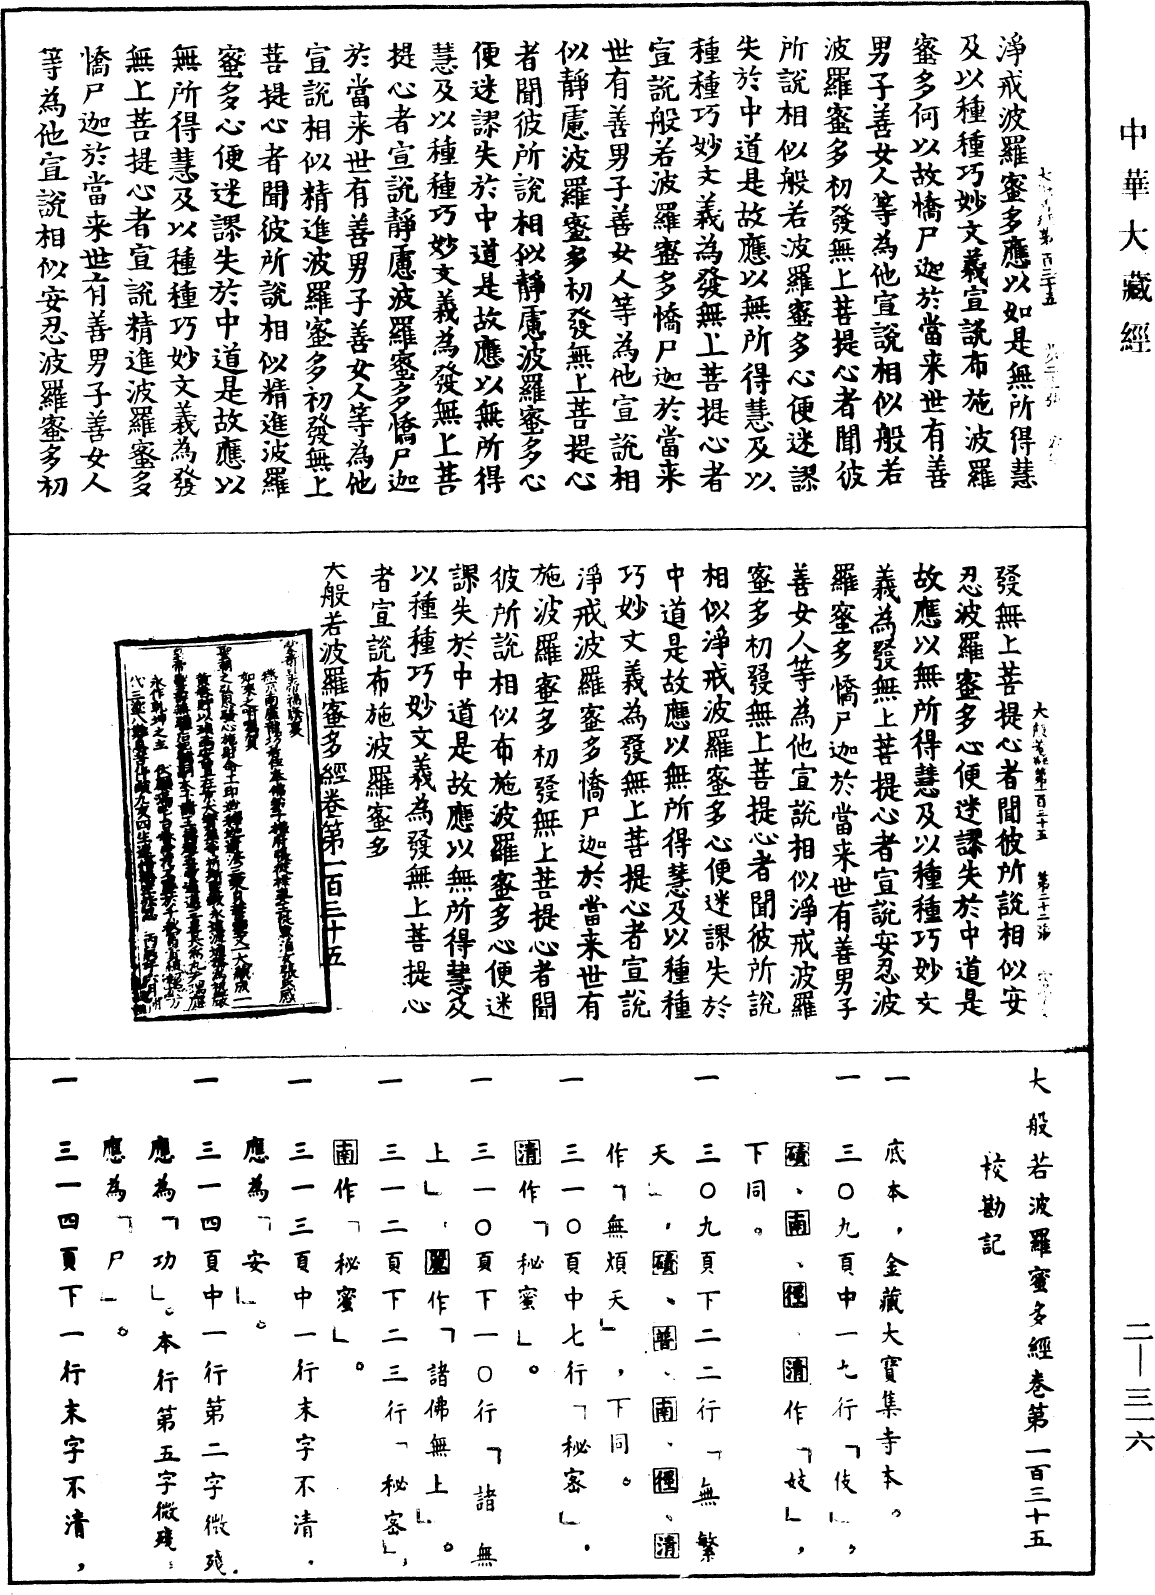 中華大藏經
淨戒波羅蜜多應以如是無所得慧
及以種種巧妙文義宣說布施波羅
蜜多何以故憍尸迦於當來世有善
男子善女人等為他宣說相似般若
波羅蜜多初發無上菩提心者聞彼
所說相似般若波羅蜜多心便迷謬
失於中道是故應以無所得慧及以
種種巧妙文義為發無上菩提心者
宣說般若波羅蜜多憍尸迦於當來
世有善男子善女人等為他宣說相
似靜慮波羅蜜多初發無上菩提心
者聞彼所說相似靜慮波羅蜜多心
便迷謬失於中道是故應以無所得
慧及以種種巧妙文義為發無上菩
提心者宣說靜慮波羅蜜多憍尸迦
於當來世有善男子善女人等為他
宣說相似精進波羅蜜多初發無上
菩提心者聞彼所說相似精進波羅
蜜多心便迷謬失於中道是故應以
無所得慧及以種種巧妙文義為發
無上菩提心者宣說精進波羅蜜多
憍尸迦於當來世有善男子善女人
等為他宣說相似安忍波羅蜜多初
大般若經第一百三十五 第二十二張
發無上菩提心者聞彼所說相似安
忍波羅蜜多心便迷謬失於中道是
故應以無所得慧及以種種巧妙文
義為發無上菩提心者宣說安忍波
羅蜜多憍尸迦於當來世有善男子
善女人等為他宣說相似淨戒波羅
蜜多初發無上菩提心者聞彼所說
相似淨戒波羅蜜多心便迷謬失於
中道是故應以無所得慧及以種種
巧妙文義為發無上菩提心者宣說
淨戒波羅蜜多憍尸迦於當來世有
施波羅蜜多初發無上菩提心者聞
彼所說相似布施波羅蜜多心便迷
謬失於中道是故應以無所得慧及
以種種巧妙文義為發無上菩提心
者宣說布施波羅蜜多
大般若波羅蜜多經卷第一百三十五
大般若波羅蜜多經卷第一百三十五
校勘記
一 底本，金藏大寶集寺本。
一 三〇九頁中一七行「伎」，
磧、南、徑、清作「妓」，
下同。
一 三〇九頁下二二行「無繁
天」，磧、普、南、徑、清
作「無煩天」，下同。
一 三一〇頁中七行「秘密」，
清作「秘蜜」。
一 三一〇頁下一〇行「諸無
上」，麗作「諸佛無上」。
一 三一二頁下二三行「秘密」，
南作「秘蜜」。
一 三一三頁中一行末字不清，
應為「安」。
一 三一四頁中一行第二字微殘，
應為「功」。本行第五字微殘，
應為「尸」。
一 三一四頁下一行末字不清，
二—三一六